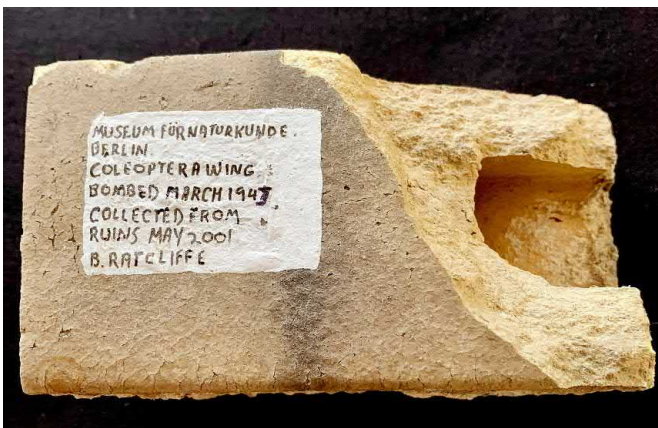 MUSEUM FÜRNATURKUNDE.
BERLIN
COLEOPTERA WING
BOMBED MARCH
COLLECTED FROM
RUINS MAY 2001
B. RATCLIFFE